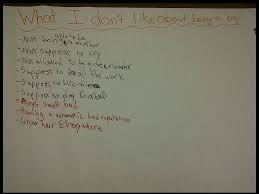 What I don't like about being a boy
- Not being able to be a mother
- Not suppost to cry
- Not allowed to be a cheerleader
- Suppost to do all the work
- Suppost to like violence
- Suppost to play football
- Boys smell bad
- Having a automatic bad reputation
- Grow hair Everywhere